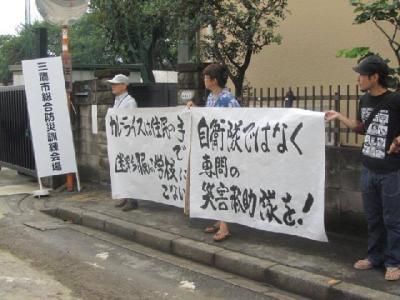 三鷹市総合防災訓練会場
カレーライスは住民
迷彩服は学校に
こない
自衛隊ではなく
専門の
災害救助隊を!